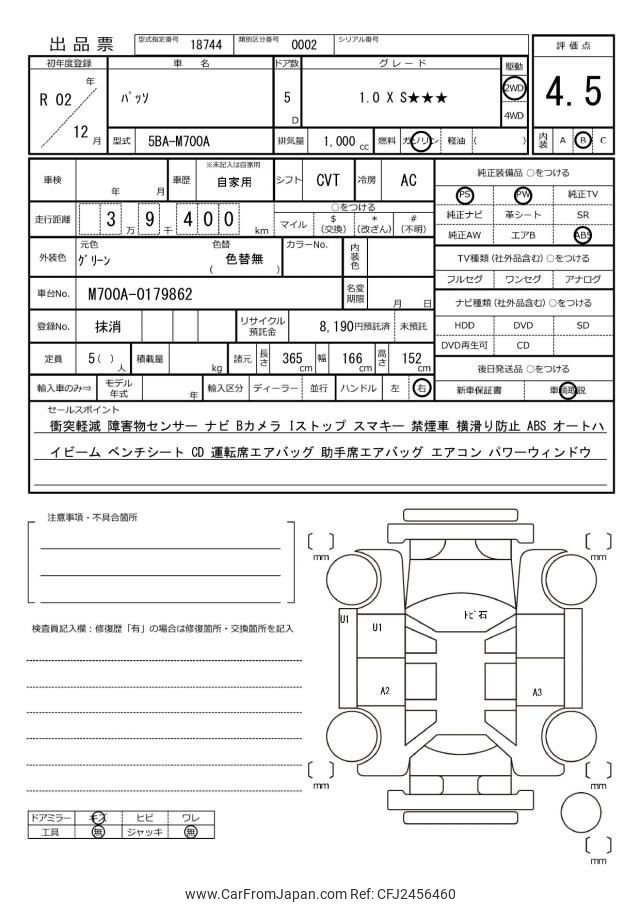 出品票
型式指定番号 18744 類別区分番号 0002 シリアル番号
評価点
4.5
初年度登録 車名 ドア数 グレード 駆動
R 02 年 12 月 パッソ 5 D 1.0 X S★★★ 2WD 4WD
型式 5BA-M700A 排気量 1,000 cc 燃料 ガソリン 軽油 ( ) 内装 A B C
車検 年 月 車歴 ※未記入は自家用 自家用 シフト CVT 冷房 AC
純正装備品 ○をつける
PS PW 純正TV
純正ナビ 革シート SR
純正AW エアB ABS
走行距離 3 万 9 千 4 0 0 km
○をつける
マイル $ (交換) * (改ざん) # (不明)
外装色 元色 グリーン 色替 ( 色替無 ) カラーNo. 内装色
TV種類 (社外品含む) ○をつける
フルセグ ワンセグ アナログ
車台No. M700A-0179862 名変期限 月 日
ナビ種類 (社外品含む) ○をつける
HDD DVD SD
DVD再生可 CD
登録No. 抹消 リサイクル預託金 8,190円預託済 未預託
定員 5 ( ) 人 積載量 kg 諸元 長さ 365 cm 幅 166 cm 高さ 152 cm
後日発送品 ○をつける
新車保証書 車輌取説
輸入車のみ⇒ モデル年式 年 輸入区分 ディーラー 並行 ハンドル 左 右
セールスポイント
衝突軽減 障害物センサー ナビ Bカメラ Iストップ スマキー 禁煙車 横滑り防止 ABS オートハ
イビーム ベンチシート CD 運転席エアバッグ 助手席エアバッグ エアコン パワーウィンドウ
注意事項・不具合箇所
検査員記入欄：修復歴「有」の場合は修復箇所・交換箇所を記入
mm
mm
トビ石
U1
U1
A2
A3
mm
mm
mm
ドアミラー キズ ヒビ ワレ
工具 無 ジャッキ 無
www.CarFromJapan.com Ref: CFJ2456460